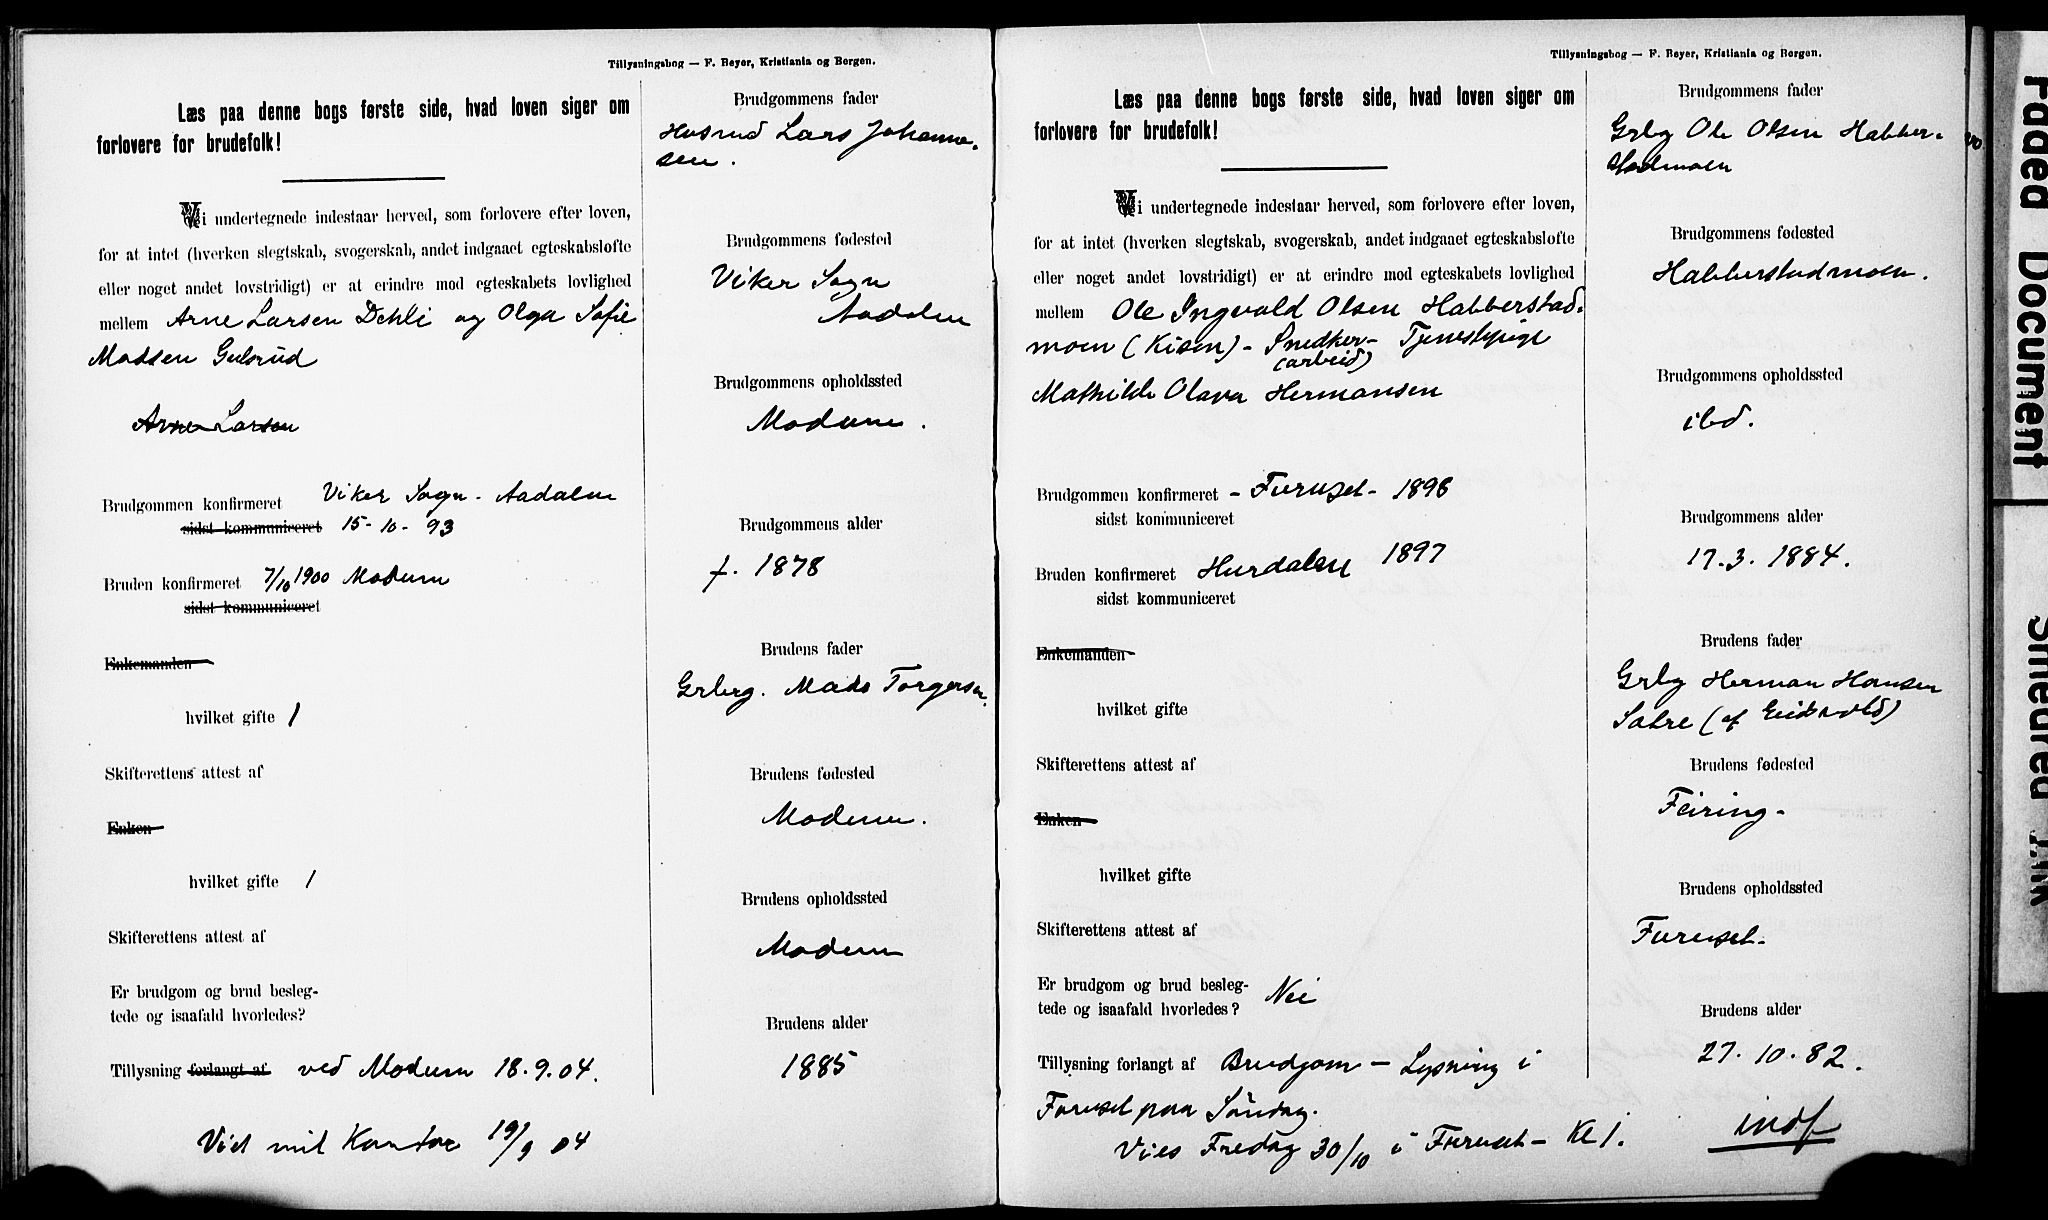 Tillysningsbog — F. Beyer, Kristiania og Bergen.
Læs paa denne bogs første side, hvad loven siger om
forlovere for brudefolk!
Vi undertegnede indestaar herved, som forlovere efter loven,
for at intet (hverken slegtskab, svogerskab, andet indgaaet egteskabsløfte
eller noget andet lovstridigt) er at erindre mod egteskabets lovlighed
mellem Arne Larsen Dehli og Olga Sofie
Madsen Gulsrud
Arne Larsen
Brudgommen konfirmeret Viker Sogn - Aadalen
sidst kommuniceret 15-10-93
Bruden konfirmeret 7/10 1900 Modum
sidst kommuniceret
Enkemanden
hvilket gifte 1
Skifterettens attest af
Enken
hvilket gifte 1
Skifterettens attest af
Er brudgom og brud besleg-
tede og isaafald hvorledes?
Tillysning forlangt af ved Modum 18.9.04.
Viet mit Kontor 19/9 04
Brudgommens fader
Husmd Lars Johanne-
sen.
Brudgommens fødested
Viker Sogn
Aadalen
Brudgommens opholdssted
Modum.
Brudgommens alder
f. 1878
Brudens fader
Grbrg. Mads Torgersen.
Brudens fødested
Modum.
Brudens opholdssted
Modum
Brudens alder
1885
Tillysningsbog — F. Beyer, Kristiania og Bergen.
Læs paa denne bogs første side, hvad loven siger om
forlovere for brudefolk!
Vi undertegnede indestaar herved, som forlovere efter loven,
for at intet (hverken slegtskab, svogerskab, andet indgaaet egteskabsløfte
eller noget andet lovstridigt) er at erindre mod egteskabets lovlighed
mellem Ole Ingvald Olsen Habberstad-
moen (Kisen) - Snedker- Tjenestepige
(arbeid)
Mathilde Olava Hermansen
Brudgommen konfirmeret - Furuset - 1898
sidst kommuniceret
Bruden konfirmeret Hurdalen 1897
sidst kommuniceret
Enkemanden
hvilket gifte
Skifterettens attest af
Enken
hvilket gifte
Skifterettens attest af
Er brudgom og brud besleg-
tede og isaafald hvorledes? Nei
Tillysning forlangt af Brudgom - Lysning i
Furuset paa Søndag.
Vies Fredag 30/10 i Furuset - Kl 1.
Brudgommens fader
Grbg Ole Olsen Habber-
stadmoen
Brudgommens fødested
Habberstadmoen.
Brudgommens opholdssted
ibd.
Brudgommens alder
17.3.1884.
Brudens fader
Grbg Herman Hansen
Sætre (af Eidsvold)
Brudens fødested
Feiring-
Brudens opholdssted
Furuset-
Brudens alder
27.10.82.
indf
Faded Document
Smeared Ink